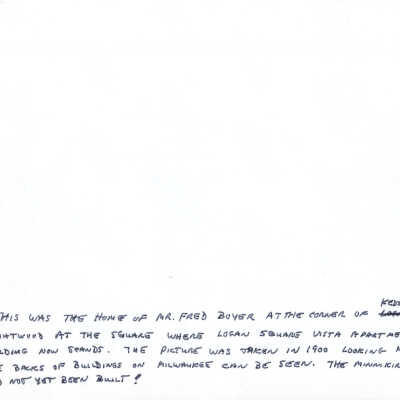 THIS WAS THE HOME OF MR. FRED BUYER AT THE CORNER OF
AT THE SQUARE WHERE LOGAN SQUARE VISTA
NOW STANDS. THE PICTURE WAS TAKEN IN 1900 LOOKING
BACKS OF BUILDINGS ON MILWAUKEE CAN BE SEEN. THE
NOT YET BEEN BUILT!